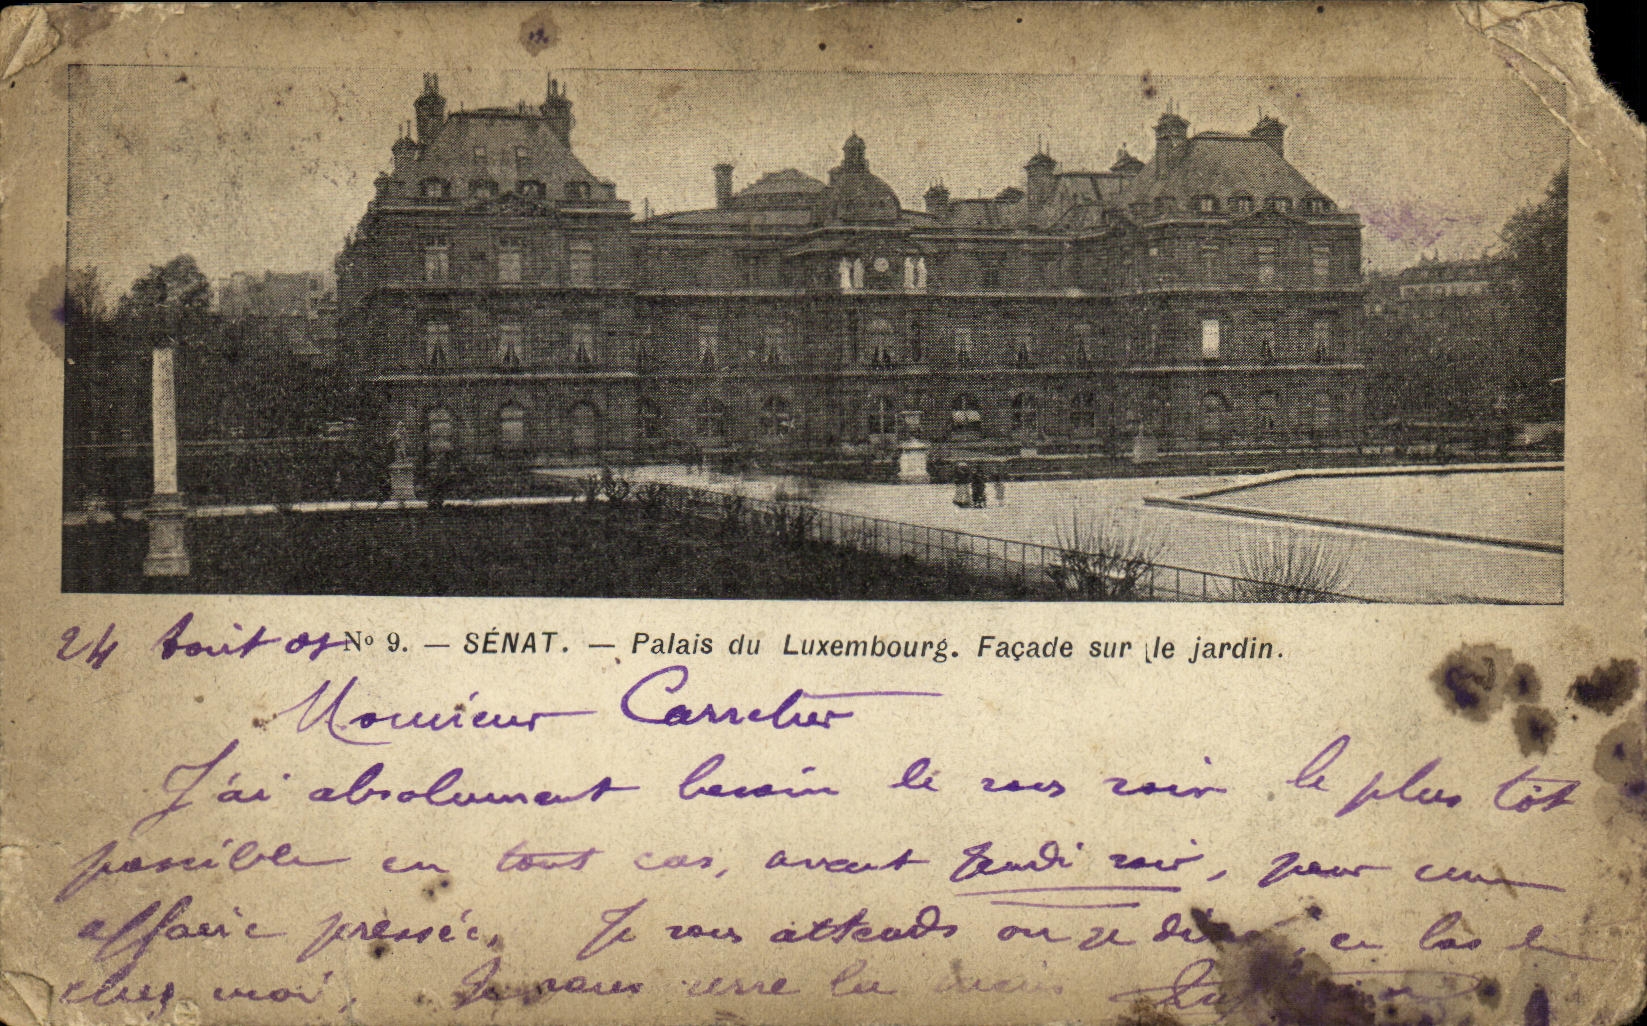 24 Août 01
Nº 9. — SÉNAT. — Palais du Luxembourg. Façade sur le jardin.
Monsieur Carretier
J'ai absolument besoin de vous voir le plus tôt
possible en tout cas, avant Jeudi soir, pour une
affaire pressée. Je vous attends ou je, en bas
chez moi. Je vous serre la main